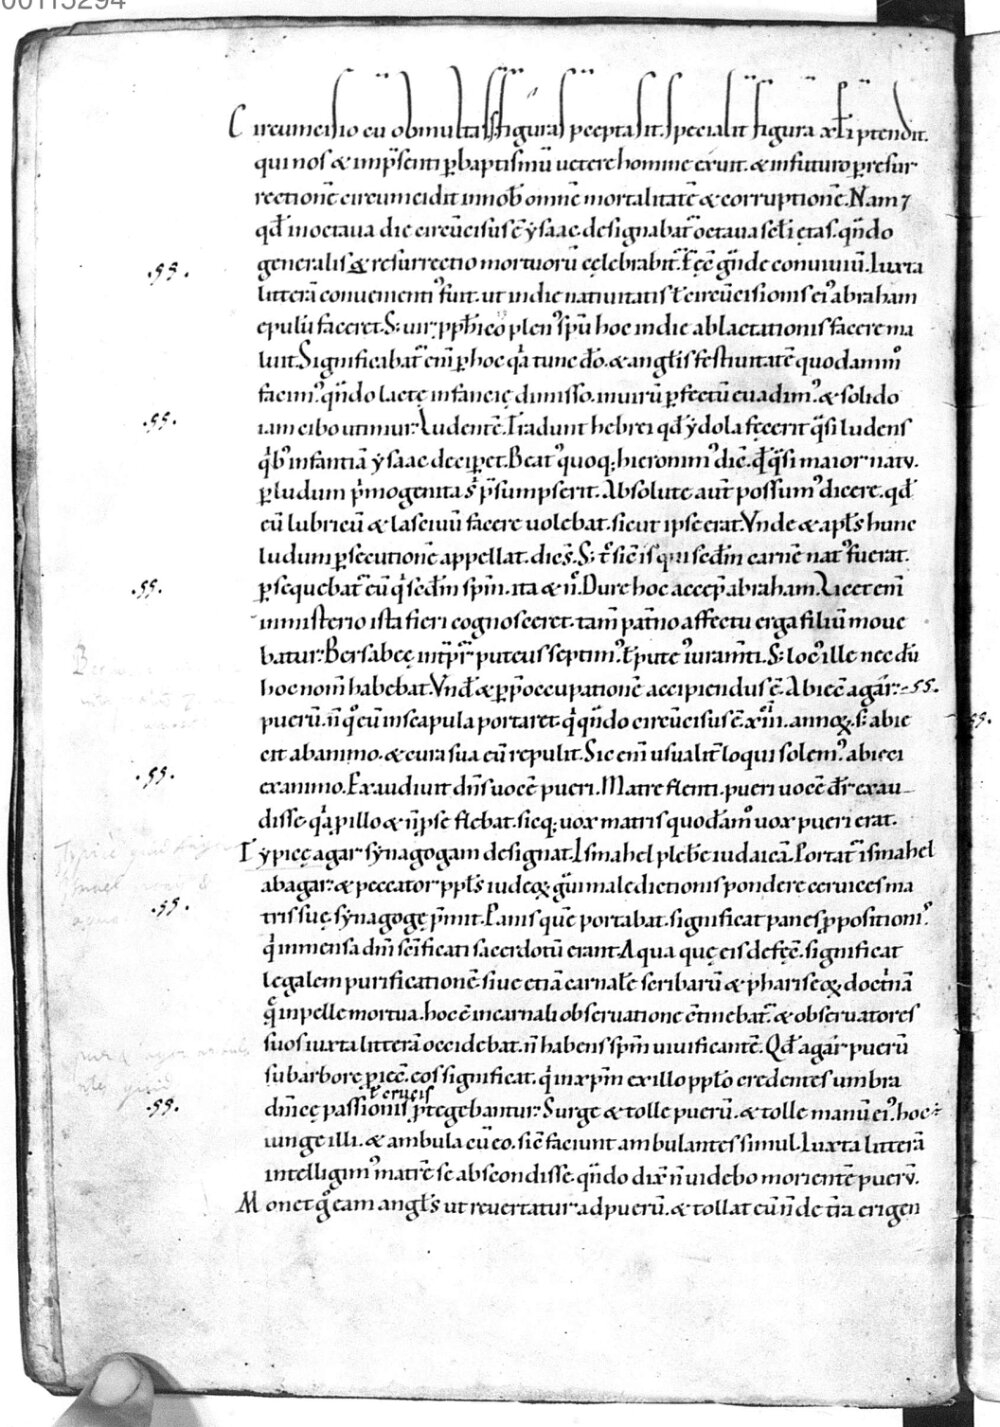 00115294
Circumcisio cū ob multas figuras p̄cepta sit. specialit̄ figurā xp̄i p̄tendit.
qui nos & in p̄senti ꝑ baptismū uetere homine exuit. & in futuro ꝑ resur
rectionē circumcidit in nob̄ omnē mortalitatē & corruptionē. Nam ⁊
qđ in octaua die circūcisus ē ysaac. designabat᷑ octaua sc̄li ętas. qn̄do
generalis & resurrectio mortuorū cęlebrabit᷑. Fęc̄ grande conuiuiū. Iuxta
litterā conuenienti᷒ fuit. ut in die natiuitatis ł circūcisionis ei᷒ abraham
epulū faceret. S; uir ꝓph̄ico plen᷒ sp̄u hoc in die ablactationis facere ma
luit. Significabat᷑ eni̅ ꝑ hoc qͣ tunc dō. & angl̄is festiuitatē quodammͦ
facim᷒. qn̄do lactę infancię dimisso. in uirū ꝑfectū euadim᷒. & solido
iam cibo utimur. Ludentē. Tradunt hebrei qđ ydola fęcerit qͣsi ludens
qͥb᷒ infantiā ysaac deciꝑet. Beat᷒ quoq; hieronim᷒ dic̄. qđ qͣsi maior natu.
ꝑ ludum pͥmogenita s̄ p̄sumpserit. Absolute aut̄ possum᷒ dicere. qđ
eū lubricū & lasciuū facere uolebat. sicut ipse erat. Vnde & apl̄s hunc
ludum ꝑsecutionē appellat. dic̄s. S; sic̄ is qui sed̄m carnē nat᷒ fuerat.
ꝑsequebat᷑ eū qͥ sed̄m sp̄m. ita & n̄. Dure hoc accep̄ abraham. Licet eni̅
in misterio ista fieri cognosceret. tam̄ pat̄no affectu erga filiū moue
batur. Bersabeę int̄p̄r puteus septim᷒. ł pute᷒ iuram̄ti. S; loc᷒ ille nec dū
hoc nom̄ habebat. Vnđ & ꝑ p̄occupationē accipiendus ē. Abiec̄ agar. .55.
puerū. n̄ qͦ eū in scapula portaret. qͥ qn̄do circūcisus ē. xiii. annoꝝ. s; abie
cit ab animo. & cura sua eū repulit. Sic eni̅ usualit̄ loqui solem᷒. abieci
ex animo. Exaudiuit dn̄s uocē pueri. Matre flenti. pueri uocē dr̄ exau
disse. qͣ ꝑ illo & n̄ ꝑ se flebat. sicq; uox matris quodamͦ uox pueri erat.
Typicę agar synagogam designat. Ismahel plebē iudaicā. Portat᷑ ismahel
ab agar. & peccator ppl̄s iudeoꝝ gͣui maledictionis pondere ceruices ma
tris suę synagogę p̄mit. Panis quē portabat. significat panes ꝓpositioni᷒.
qͥ in mensa dn̄i sc̄ificati sacerdotū erant. Aqua quę eis defęc̄. significat
legalem purificationē. siue etiā carnalē scribarū & phariseoꝝ doctͥnā
quę in pelle mortua. hoc ē in carnali obseruatione c̄tinebat᷑. & obseruatores
suos iuxta litterā occidebat. n̄ habens sp̄m uiuificantē. Qđ agar puerū
sub arbore ꝓiec̄. eos significat. qͥ in xp̄m ex illo ppl̄o credentes umbra
ł crucis
dn̄icę passionis p̄tegebantur. Surge & tolle puerū. & tolle manū ei᷒. hoc ÷
iunge illi. & ambula cū eo. sic̄ faciunt ambulantes simul. Iuxta litterā
intelligim᷒ matrē se abscondisse. qn̄do dix̄ n̄ uidebo morientē puerū.
Monet gͦ eam angl̄s ut reuertatur ad puerū. & tollat eū n̄ de t̄ra erigen
.55.
.55.
.55.
.55.
.55.
.55.
.55.